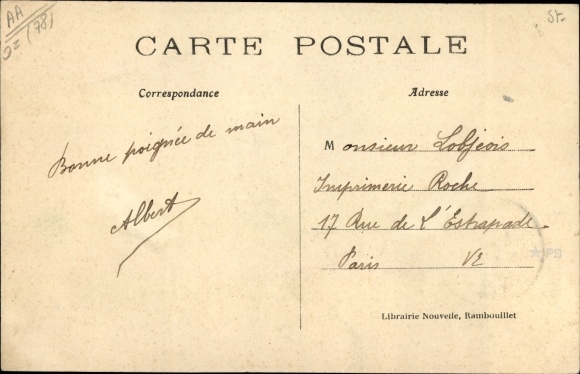 AA
(78)
CARTE POSTALE
Correspondance
Adresse
Bonne poignée de main
Albert
Monsieur Lobjeois
Imprimerie Roche
17 Rue de L'Estrapade
Paris VE
Librairie Nouvelle, Rambouillet